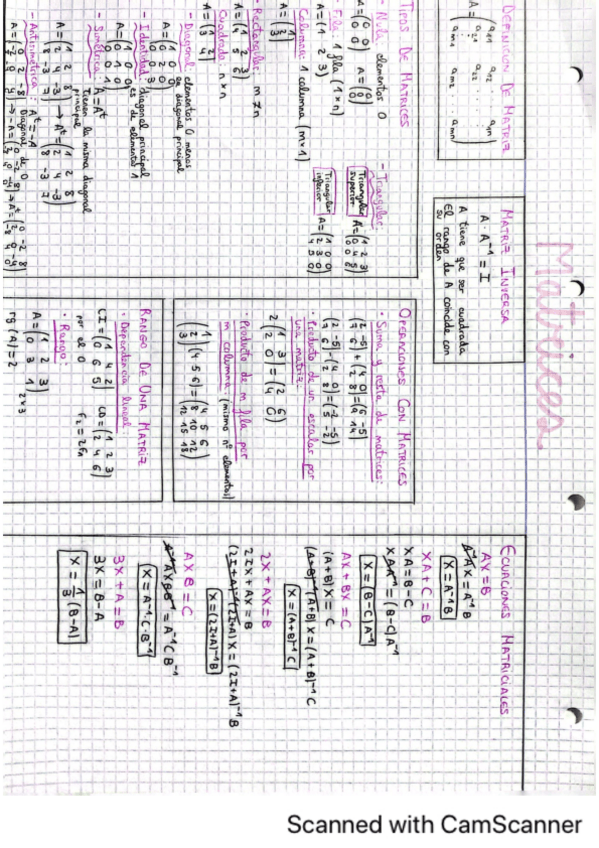 Matrices
DEFINICIÓN DE MATRIZ
A = (a11 a12 ... a1n
a21 a22 ...
am1 am2 ... amn)
MATRIZ INVERSA
A · A⁻¹ = I
A tiene que ser cuadrada
El rango de A coincide con
su orden
TIPOS DE MATRICES
- Nula: elementos 0
- Fila: 1 fila (1×n)
A = (1 2 3)
Columna: 1 columna (m×1)
- Rectangular: m ≠ n
A = (1 2 3
4 5 6)
Cuadrada: n×n
A = (1 2
3 4)
- Diagonal: elementos 0 menos
en diagonal principal
A = (1 0 0
0 2 0
0 0 3)
- Identidad: diagonal principal
es de elementos 1
A = (1 0 0
0 1 0
0 0 1)
- Simétrica: A = Aᵗ
Tienen la misma diagonal
principal
A = (1 2 8
2 4 -3
8 -3 7) → Aᵗ = (1 2 8
2 4 -3
8 -3 7)
- Antisimétrica: Aᵗ = -A
Diagonal de 0
- Triangular:
Triangular superior
A = (1 2 3
0 4 5
0 0 8)
Triangular inferior
A = (1 0 0
2 3 0
4 5 0)
OPERACIONES CON MATRICES
· Suma y resta de matrices:
(2 -5
7 6) + (4 0
2 8) = (6 -5
9 14)
(2 -5
7 6) - (4 0
2 8) = (-2 -5
5 -2)
· Producto de un escalar por
una matriz:
2 (1 3
2 0) = (2 6
4 0)
· Producto de m fila por
m columna: (mismo nº elementos)
(1
2
3) (4 5 6) = (4 5 6
8 10 12
12 15 18)
RANGO DE UNA MATRIZ
· Dependencia lineal
LI = (1 4 2
0 6 5) LD = (1 2 3
2 4 6)
por el 0 F2 = 2F1
· Rango:
A = (1 2 3
0 3 1) 2×3
rg (A) = 2
ECUACIONES MATRICIALES
AX = B
A⁻¹AX = A⁻¹B
X = A⁻¹B
XA + C = B
XA = B - C
XAA⁻¹ = (B-C)A⁻¹
X = (B-C)A⁻¹
AX + BX = C
(A+B)X = C
(A+B)⁻¹(A+B)X = (A+B)⁻¹C
X = (A+B)⁻¹C
2X + AX = B
2IX + AX = B
(2I+A)⁻¹(2I+A)X = (2I+A)⁻¹B
X = (2I+A)⁻¹B
AXB = C
A⁻¹AXBB⁻¹ = A⁻¹CB⁻¹
X = A⁻¹·C·B⁻¹
3X + A = B
3X = B - A
X = 1/3 (B-A)
Scanned with CamScanner